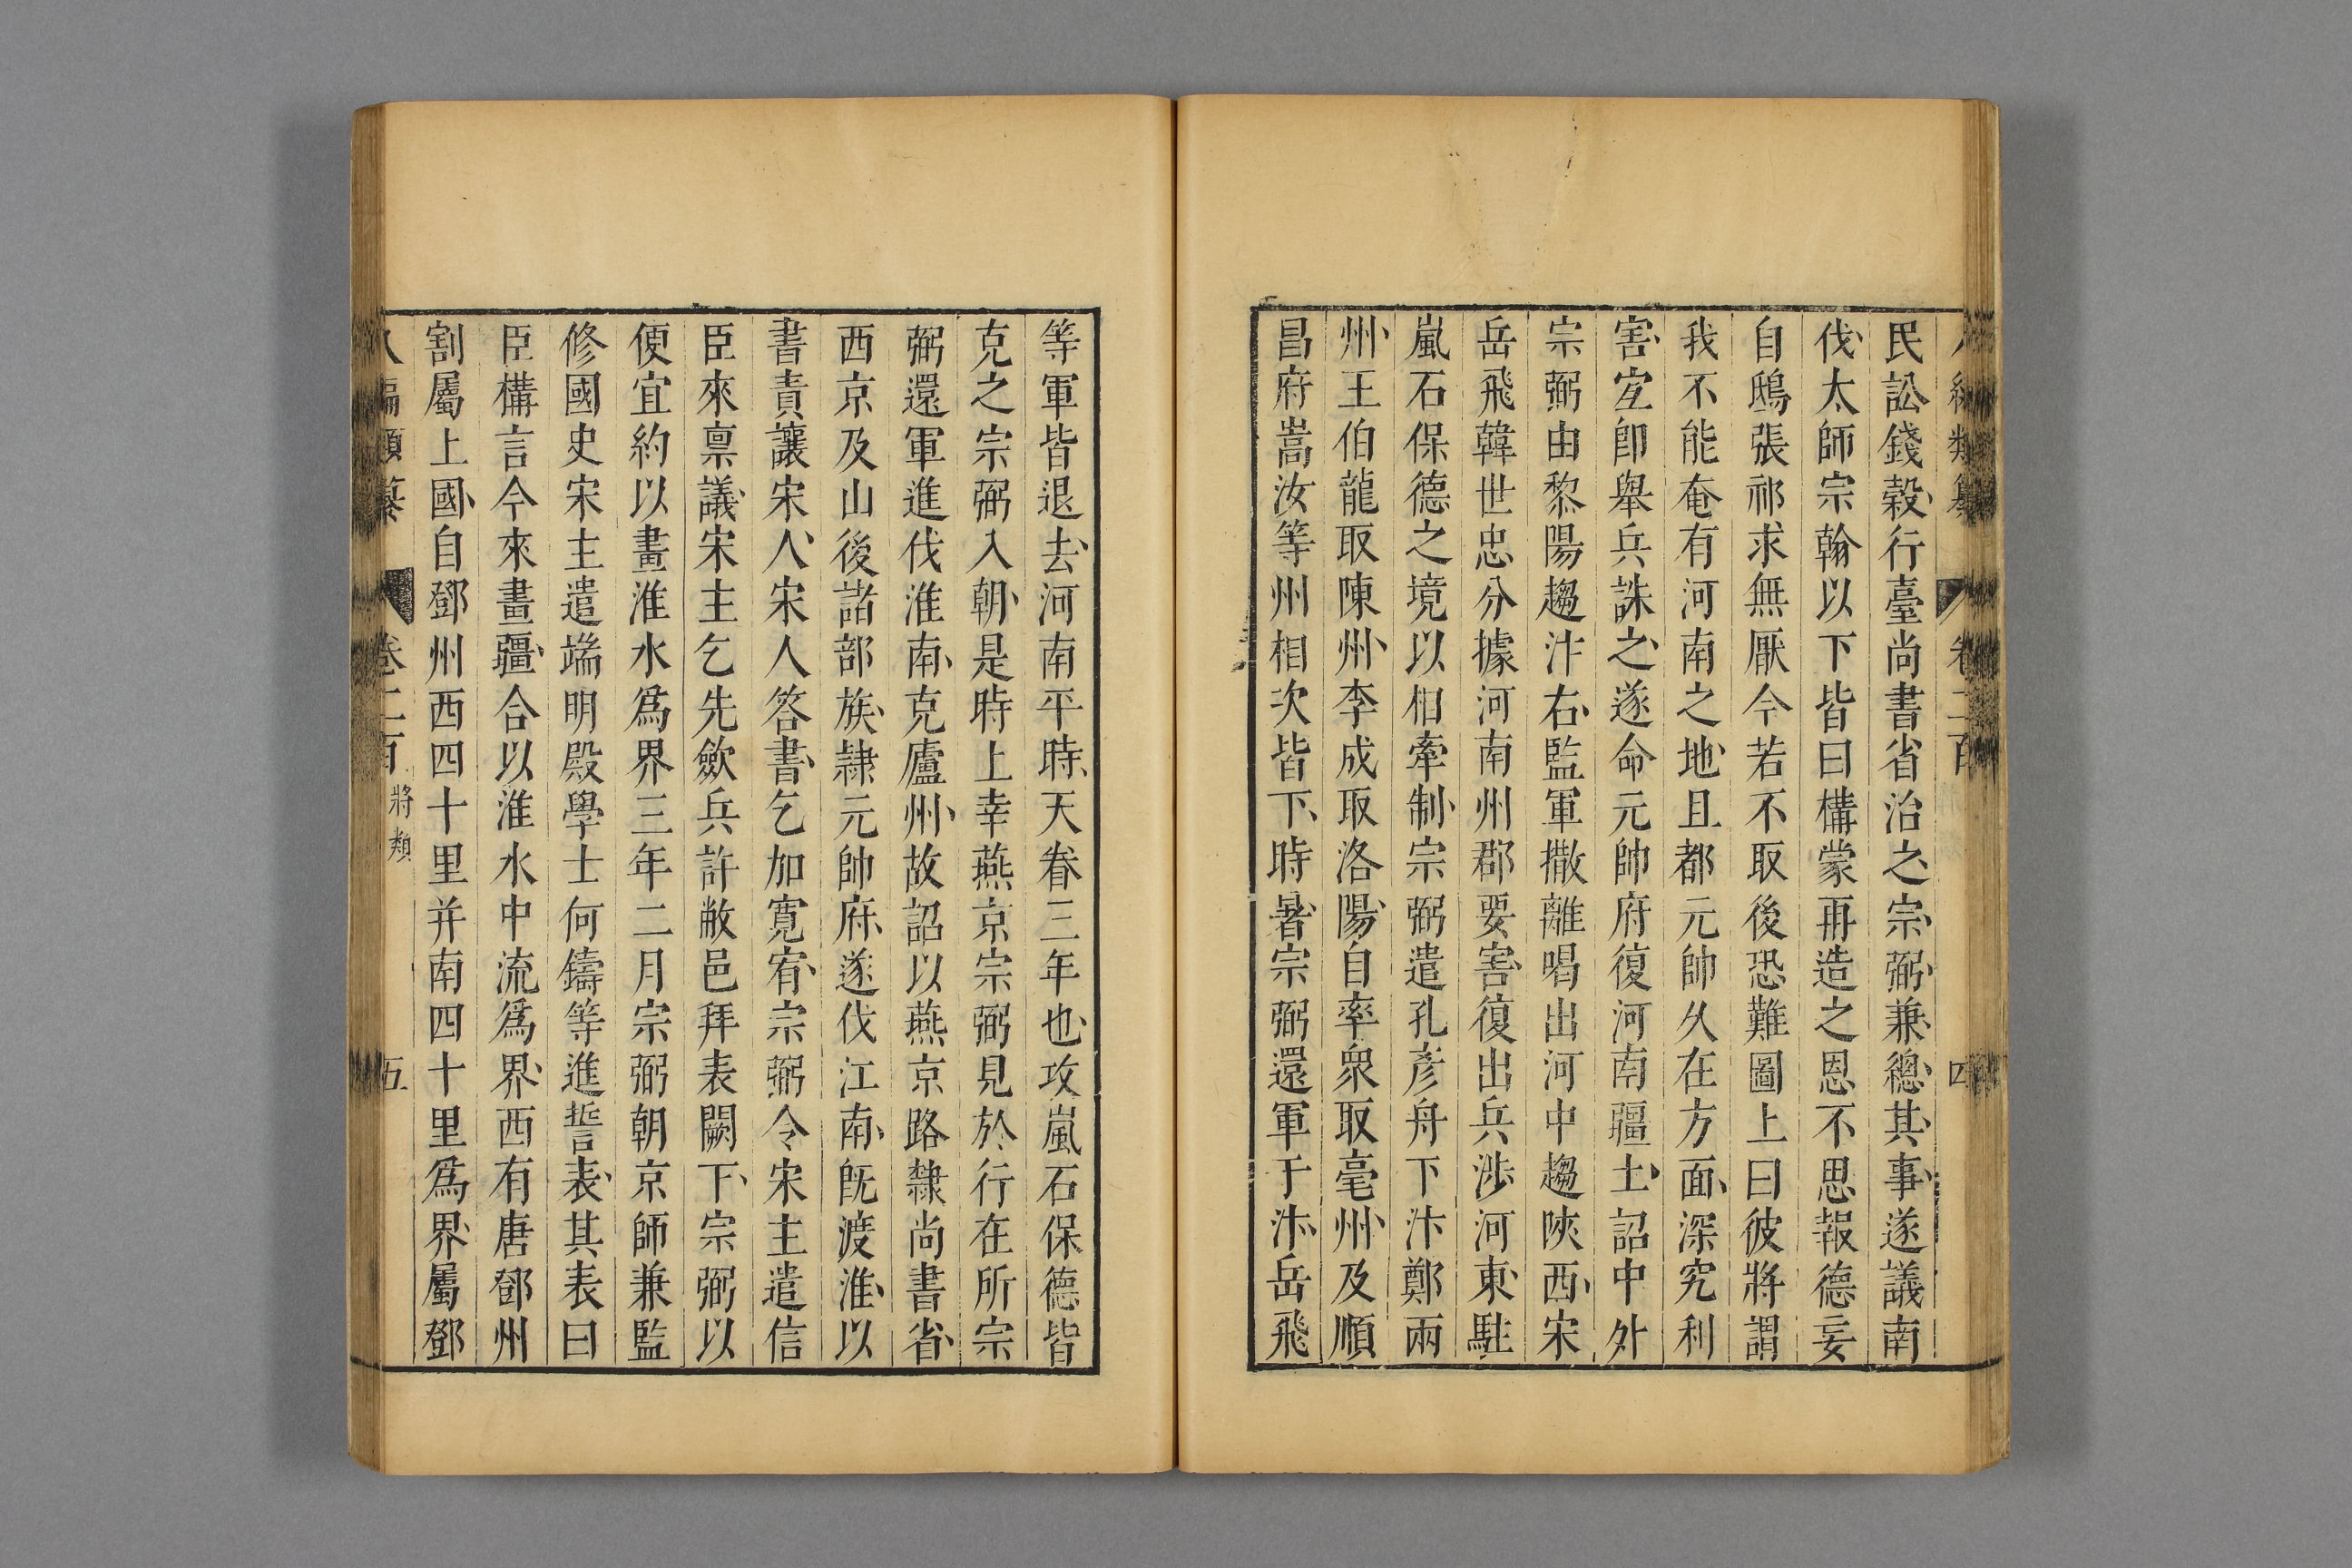 民訟錢穀行臺尚書省治之宗弼兼總其事遂議南
伐太師宗翰以下皆曰構蒙再造之恩不思報德妄
自鴟張祁求無厭今若不取後恐難圖上曰彼將謂
我不能奄有河南之地且都元帥久在方面深究利
害宜卽舉兵誅之遂命元帥府復河南疆土詔中外
宗弼由黎陽趨汴右監軍撒離喝出河中趨陝西宋
岳飛韓世忠分據河南州郡要害復出兵涉河東駐
嵐石保德之境以相牽制宗弼遣孔彥舟下汴鄭兩
州王伯龍取陳州李成取洛陽自率衆取亳州及順
昌府嵩汝等州相次皆下時暑宗弼還軍于汴岳飛
等軍皆退去河南平時天眷三年也攻嵐石保德皆
克之宗弼入朝是時上幸燕京宗弼見於行在所宗
弼還軍進伐淮南克廬州故詔以燕京路隸尚書省
西京及山後諸部族隷元帥府遂伐江南旣渡淮以
書責讓宋人宋人答書乞加寬宥宗弼令宋主遣信
臣來禀議宋主乞先斂兵許敝邑拜表闕下宗弼以
便宜約以畫淮水爲界三年二月宗弼朝京師兼監
修國史宋主遣端明殿學士何鑄等進誓表其表曰
臣構言今來畫疆合以淮水中流爲界西有唐鄧州
割屬上國自鄧州西四十里并南四十里爲界屬鄧
八編類纂 卷二百 將類 五